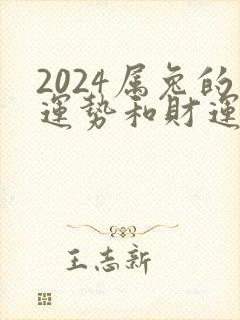 2024属兔的
運勢和財運
王志新